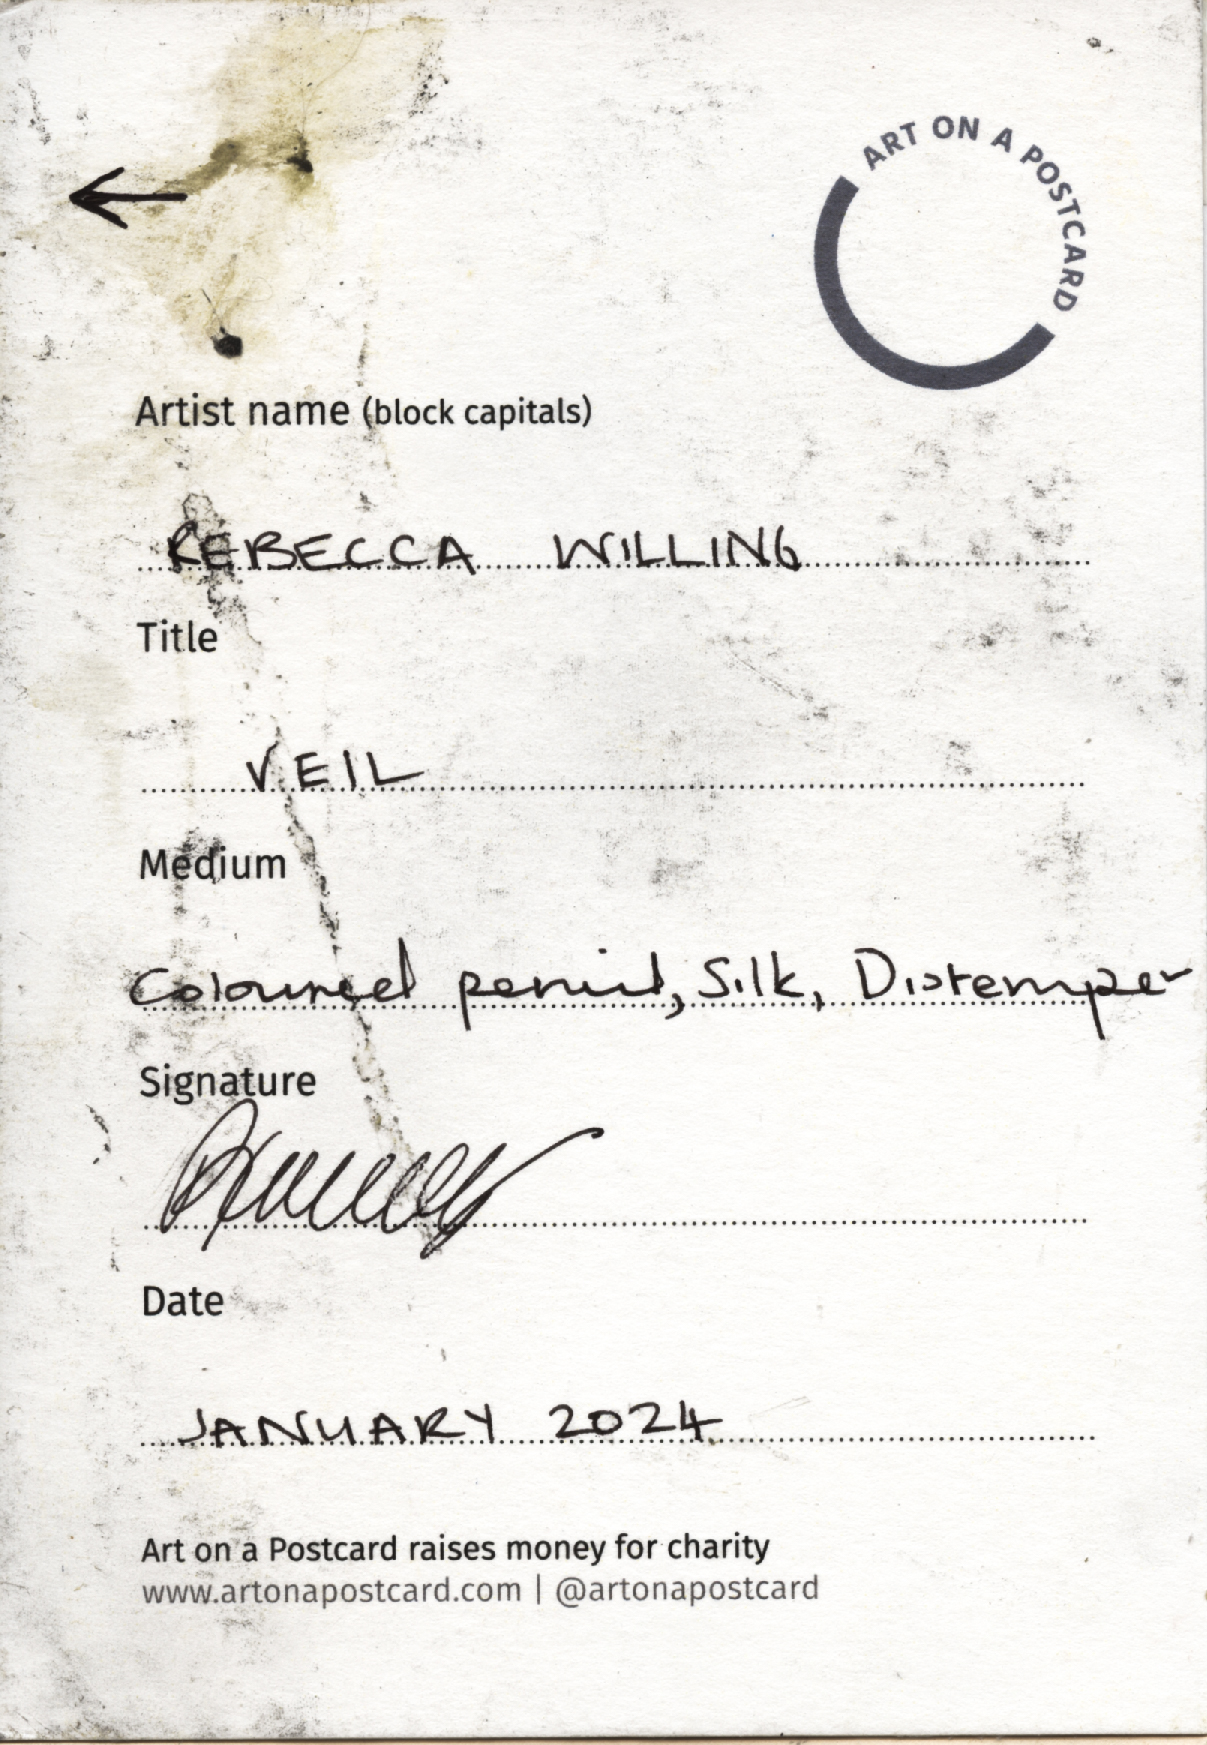 ART ON A POSTCARD
Artist name (block capitals)
REBECCA WILLING
Title
VEIL
Medium
Coloured pencil, Silk, Distemper
Signature
Date
JANUARY 2024
Art on a Postcard raises money for charity
www.artonapostcard.com | @artonapostcard